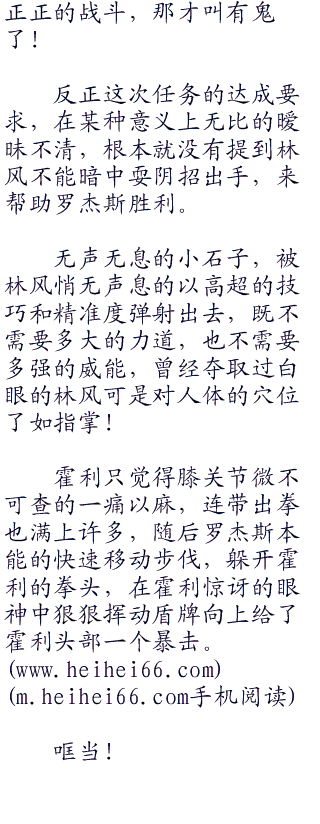 正正的战斗，那才叫有鬼
了！
反正这次任务的达成要
求，在某种意义上无比的暧
昧不清，根本就没有提到林
风不能暗中耍阴招出手，来
帮助罗杰斯胜利。
无声无息的小石子，被
林风悄无声息的以高超的技
巧和精准度弹射出去，既不
需要多大的力道，也不需要
多强的威能，曾经夺取过白
眼的林风可是对人体的穴位
了如指掌！
霍利只觉得膝关节微不
可查的一痛以麻，连带出拳
也满上许多，随后罗杰斯本
能的快速移动步伐，躲开霍
利的拳头，在霍利惊讶的眼
神中狠狠挥动盾牌向上给了
霍利头部一个暴击。
(www.heihei66.com)
(m.heihei66.com手机阅读)
哐当！